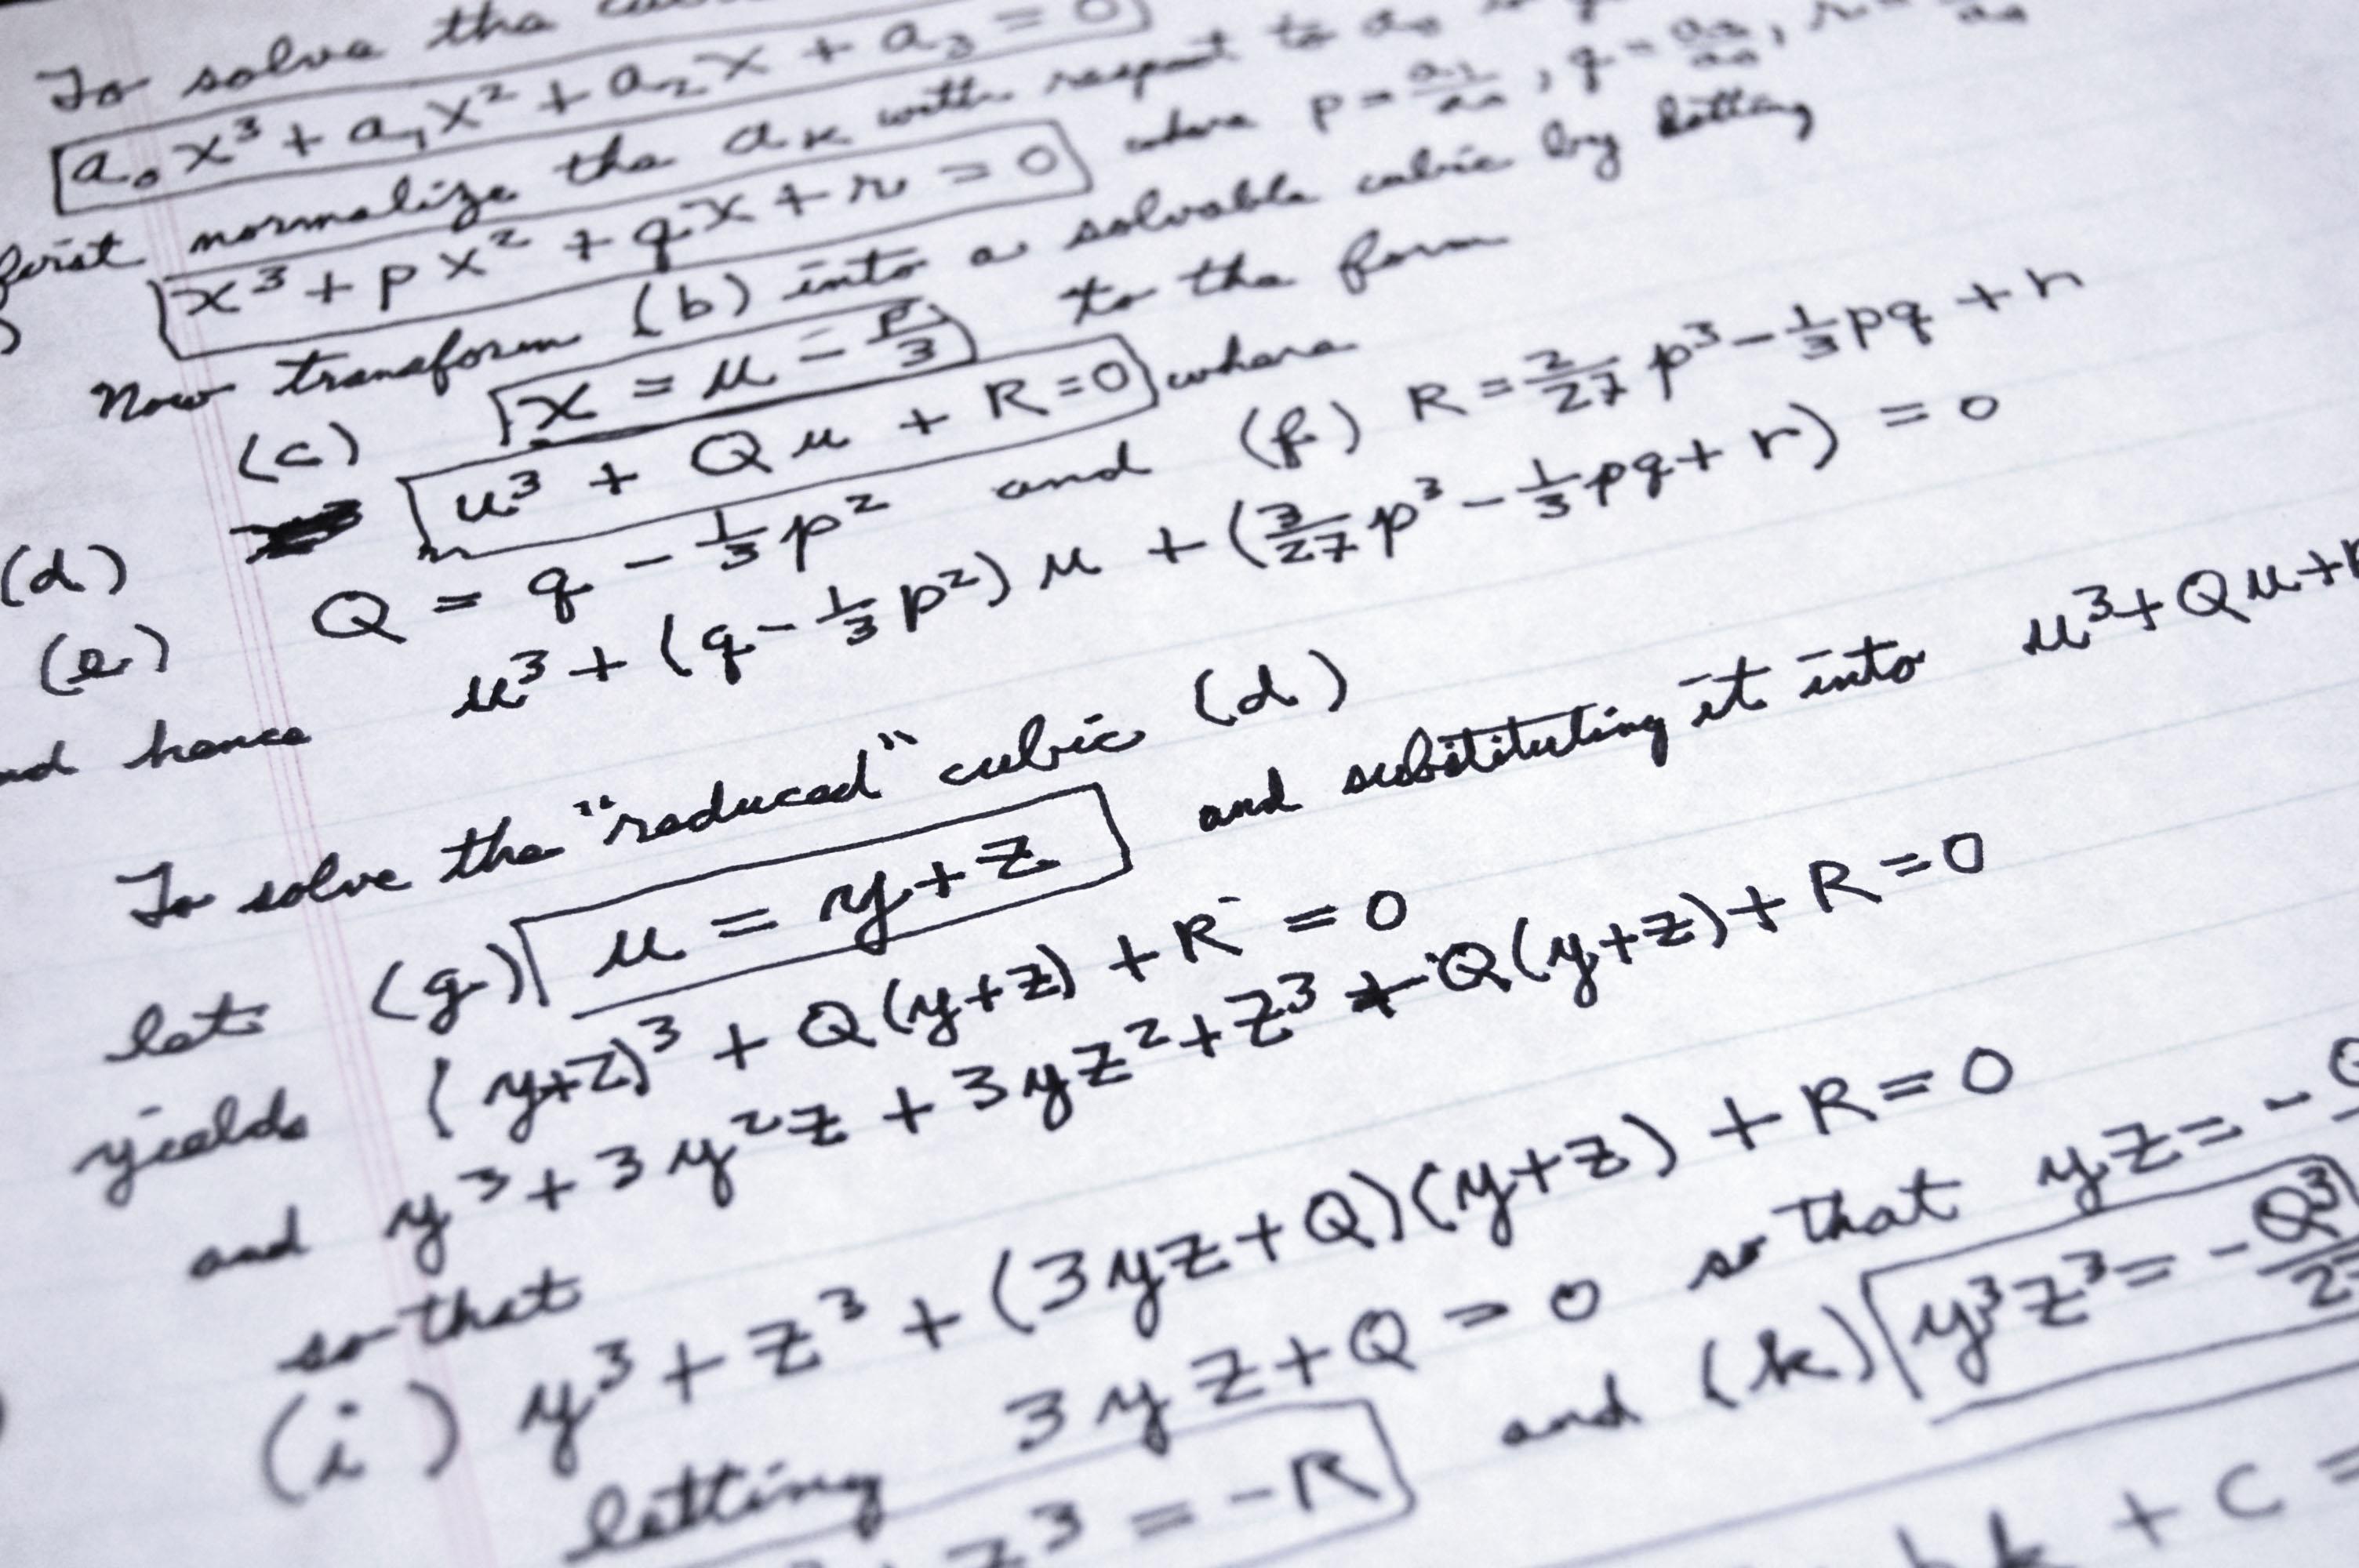 To solve the
a₀x³ + a₁x² + a₂x + a₃ = 0
first normalize the aₖ with respect to a₀
x³ + px² + qx + r = 0 where p = a₁/a₀, q =
Now transform (b) into a solvable cubic by letting
(c) x = u - p/3 to the form
(d) u³ + Qu + R = 0 where
(e) Q = q - 1/3 p² and (f) R = 2/27 p³ - 1/3 pq + r
hence u³ + (q - 1/3 p²) u + (3/27 p³ - 1/3 pq + r) = 0
To solve the "reduced" cubic (d)
let (g) u = y + z and substituting it into u³ + Qu +
yields (y+z)³ + Q(y+z) + R = 0
and y³ + 3y²z + 3yz² + z³ + Q(y+z) + R = 0
so that
(i) y³ + z³ + (3yz + Q)(y+z) + R = 0
letting 3yz + Q = 0 so that yz = -
z³ = -R and (k) y³z³ = - Q³/2
+ c =